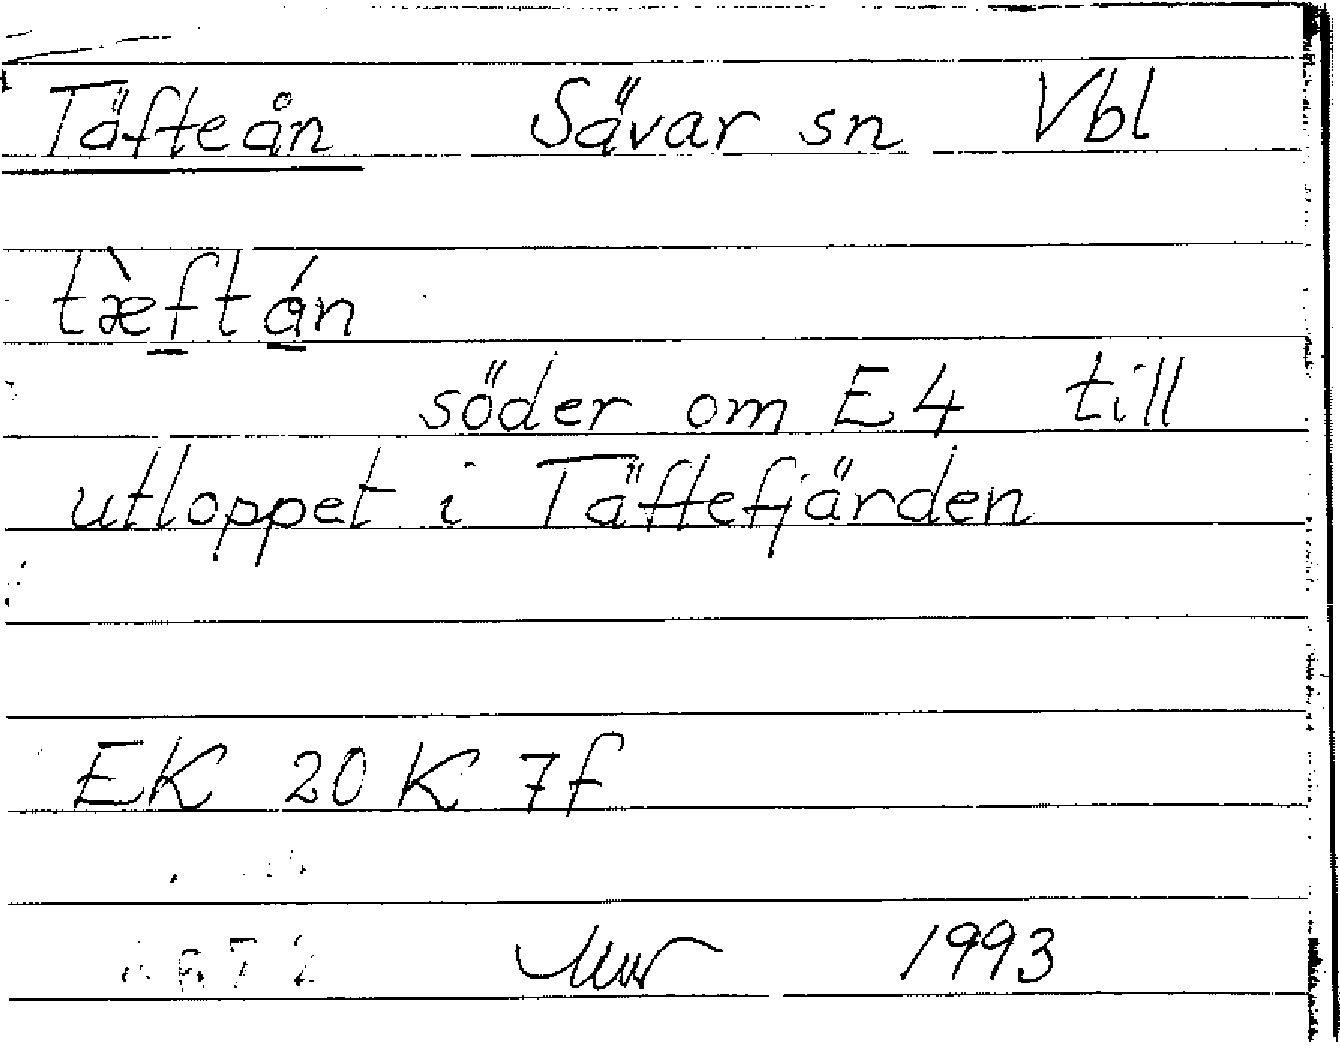 Täfteån Sävar sn Vbl
tæ̀ftán
söder om E4 till
utloppet i Täftefjärden
EK 20 K 7f
1993